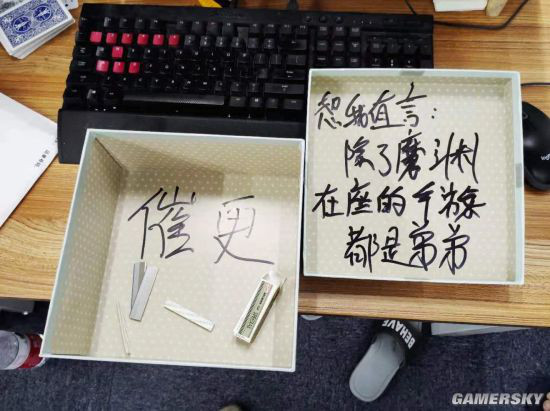 催更
恕我直言：
除了磨渊
在座的手辣
都是弟弟
BEHAVE
GAMERSKY